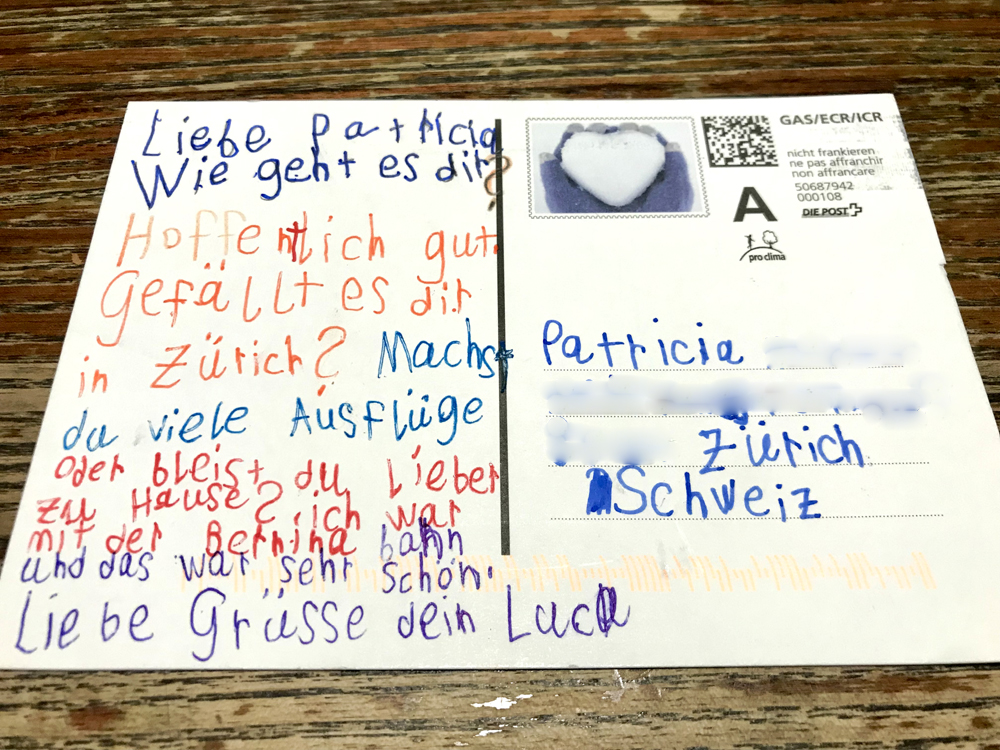 Liebe Patricia
Wie geht es dir?
Hoffentlich gut.
Gefällt es dir
in Zürich? Machst
du viele Ausflüge
Oder bleist du Lieber
zu Hause? ich war
mit der Bernina bahn
und das war sehr schön.
Liebe Grüsse dein Luca
GAS/ECR/ICR
nicht frankieren
ne pas affranchir
non affrancare
50687942
000108
A
DIE POST
pro clima
Patricia
Zürich
Schweiz